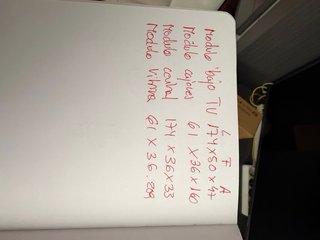 L F A
Modulo bajo TV 174x50x47
Modulo cajones 61 x36x160
Modulo 174 x 36x33
Modulo Vitrina 61 x 36.209